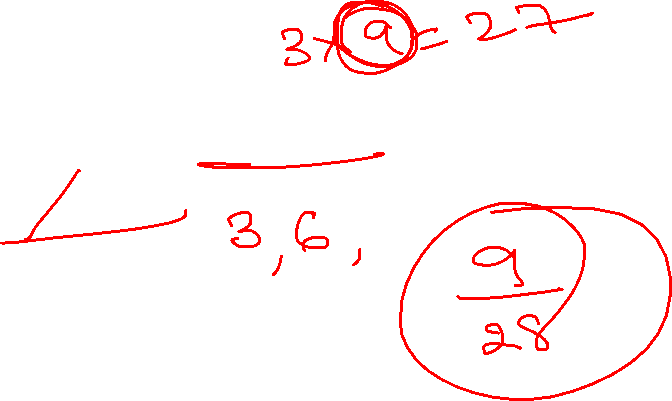 3×9=27
3, 6, 9/28